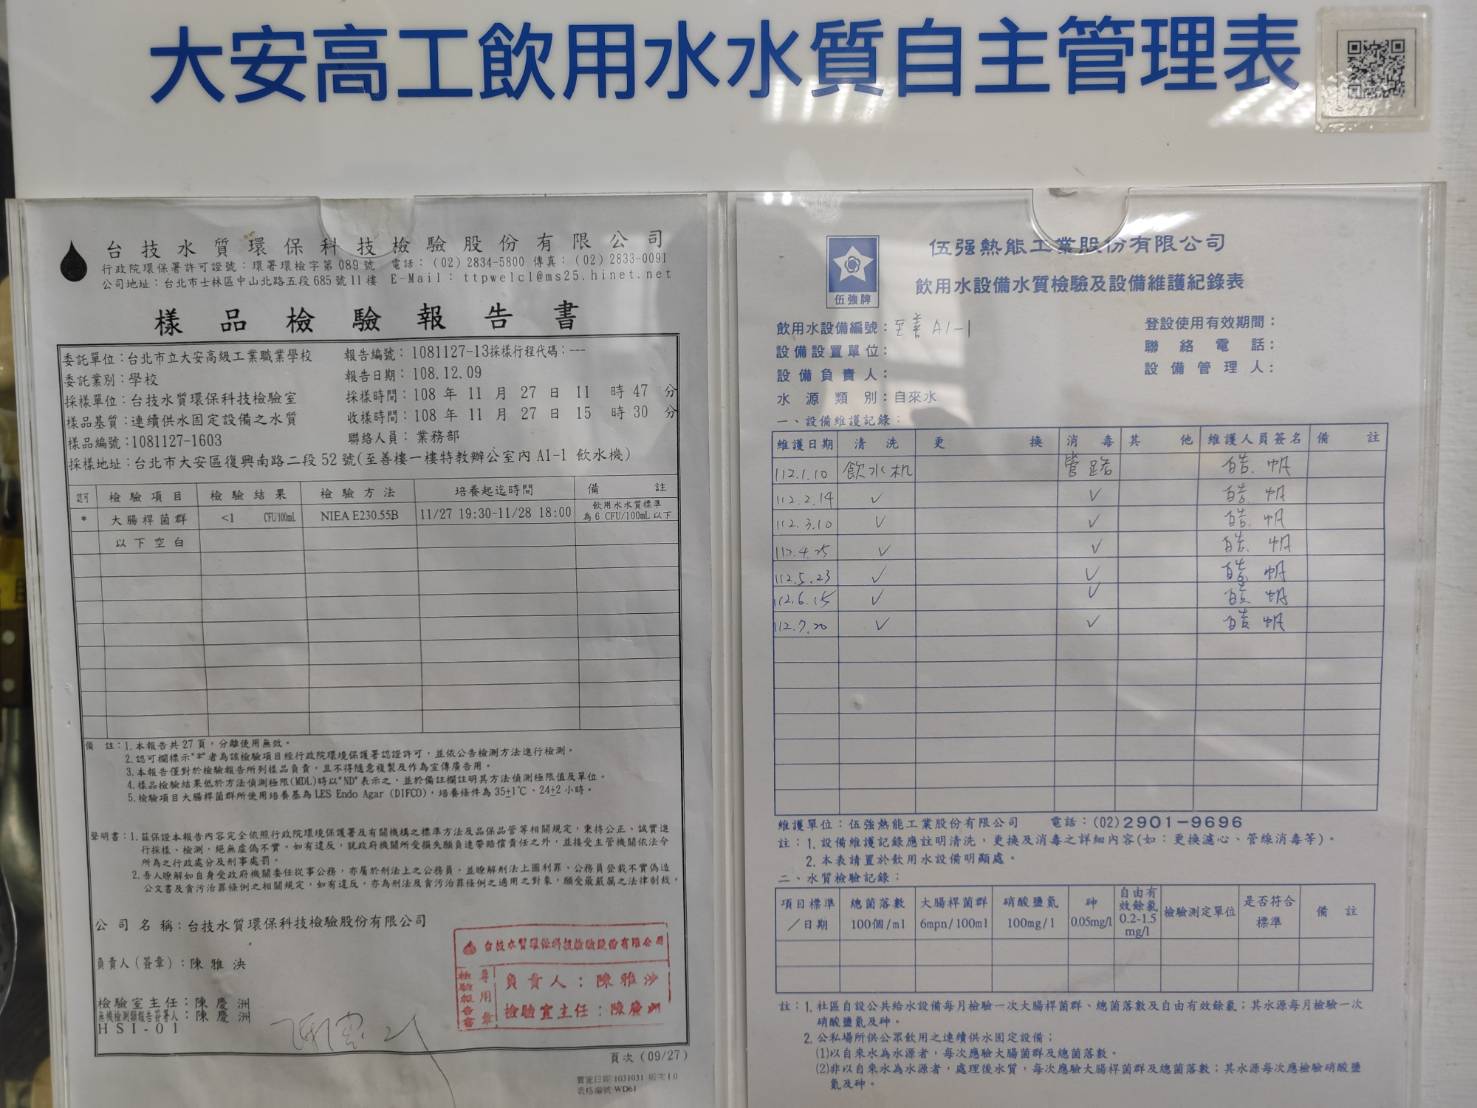 大安高工飲用水水質自主管理表
台技水質環保科技檢驗股份有限公司
行政院環保署許可證號：環署環檢字第089號 電話：(02) 2834-5800 傳真：(02) 2833-0091
公司地址：台北市士林區中山北路五段685號11樓 E-Mail： ttpwelcl@ms25.hinet.net
樣品檢驗報告書
委託單位：台北市立大安高級工業職業學校 報告編號：1081127-13採樣行程代碼：---
委託業別：學校 報告日期：108.12.09
採樣單位：台技水質環保科技檢驗室 採樣時間：108 年 11 月 27 日 11 時 47 分
樣品基質：連續供水固定設備之水質 收樣時間：108 年 11 月 27 日 15 時 30 分
樣品編號：1081127-1603 聯絡人員：業務部
採樣地址：台北市大安區復興南路二段52號(至善樓一樓特教辦公室內A1-1 飲水機)
認可 檢驗項目 檢驗結果 檢驗方法 培養起迄時間 備註
* 大腸桿菌群 <1 CFU/100mL NIEA E230.55B 11/27 19:30-11/28 18:00 飲用水水質標準
為6 CFU/100mL以下
以下空白
備 註：1.本報告共27頁，分離使用無效。
2.認可欄標示"*"者為該檢驗項目經行政院環境保護署認證許可，並依公告檢測方法進行檢測。
3.本報告僅對於檢驗報告所列樣品負責，且不得隨意複製及作為宣傳廣告用。
4.樣品檢驗結果低於方法偵測極限(MDL)時以"ND"表示之，並於備註欄註明其方法偵測極限值及單位。
5.檢驗項目大腸桿菌群所使用培養基為LES Endo Agar (DIFCO)，培養條件為35±1℃、24±2小時。
聲明書：1.茲保證本報告內容完全依照行政院環境保護署及有關機構之標準方法及品保品管等相關規定，秉持公正、誠實進
行採樣、檢測，絕無虛偽不實，如有違反，就政府機關所受損失願負連帶賠償責任之外，並接受主管機關依法令
所為之行政處分及刑事處罰。
2.吾人瞭解如自身受政府機關委任從事公務，亦屬於刑法上之公務員，並瞭解刑法上圖利罪、公務員登載不實偽造
公文書及貪污治罪條例之相關規定，如有違反，亦為刑法及貪污治罪條例之適用之對象，願受最嚴厲之法律制裁。
公司名稱：台技水質環保科技檢驗股份有限公司
負責人(簽章)：陳雅泱
檢驗室主任：陳慶洲
無機檢測類報告簽署人：陳慶洲
HSI-01
台技水質環保科技檢驗股份有限公司
檢驗報告書專用章
負責人：陳雅泱
檢驗室主任：陳慶洲
頁次 (09/27)
實施日期:1031031 版次1.0
表格編號:WD61
伍強牌
伍强熱能工業股份有限公司
飲用水設備水質檢驗及設備維護紀錄表
飲用水設備編號：至善 A1-1 登設使用有效期間：
設備設置單位： 聯絡電話：
設備負責人： 設備管理人：
水源類別：自來水
一、設備維護記錄：
維護日期 清洗 更換 消毒 其他 維護人員簽名 備註
112.1.10 飲水机 管路 皓帆
112.2.14 ✓ ✓ 皓帆
112.3.10 ✓ ✓ 皓帆
112.4.25 ✓ ✓ 皓帆
112.5.23 ✓ ✓ 皓帆
112.6.15 ✓ ✓ 皓帆
112.7.20 ✓ ✓ 皓帆
維護單位：伍強熱能工業股份有限公司 電話：(02)2901-9696
註：1.設備維護紀錄應註明清洗，更換及消毒之詳細內容(如：更換濾心、管線消毒等)。
2.本表請置於飲用水設備明顯處。
二、水質檢驗記錄：
項目標準／日期 總菌落數 100個/ml 大腸桿菌群 6mpn/100ml 硝酸鹽氮 100mg/l 砷 0.05mg/l 自由有效餘氯 0.2-1.5 mg/l 檢驗測定單位 是否符合標準 備註
註：1.社區自設公共給水設備每月檢驗一次大腸桿菌群、總菌落數及自由有效餘氯；其水源每月檢驗一次
硝酸鹽氮及砷。
2.公私場所供公眾飲用之連續供水固定設備；
(1)以自來水為水源者，每次應驗大腸菌群及總菌落數。
(2)非以自來水為水源者，處理後水質，每次應驗大腸桿菌群及總菌落數；其水源每次應檢驗硝酸鹽
氮及砷。